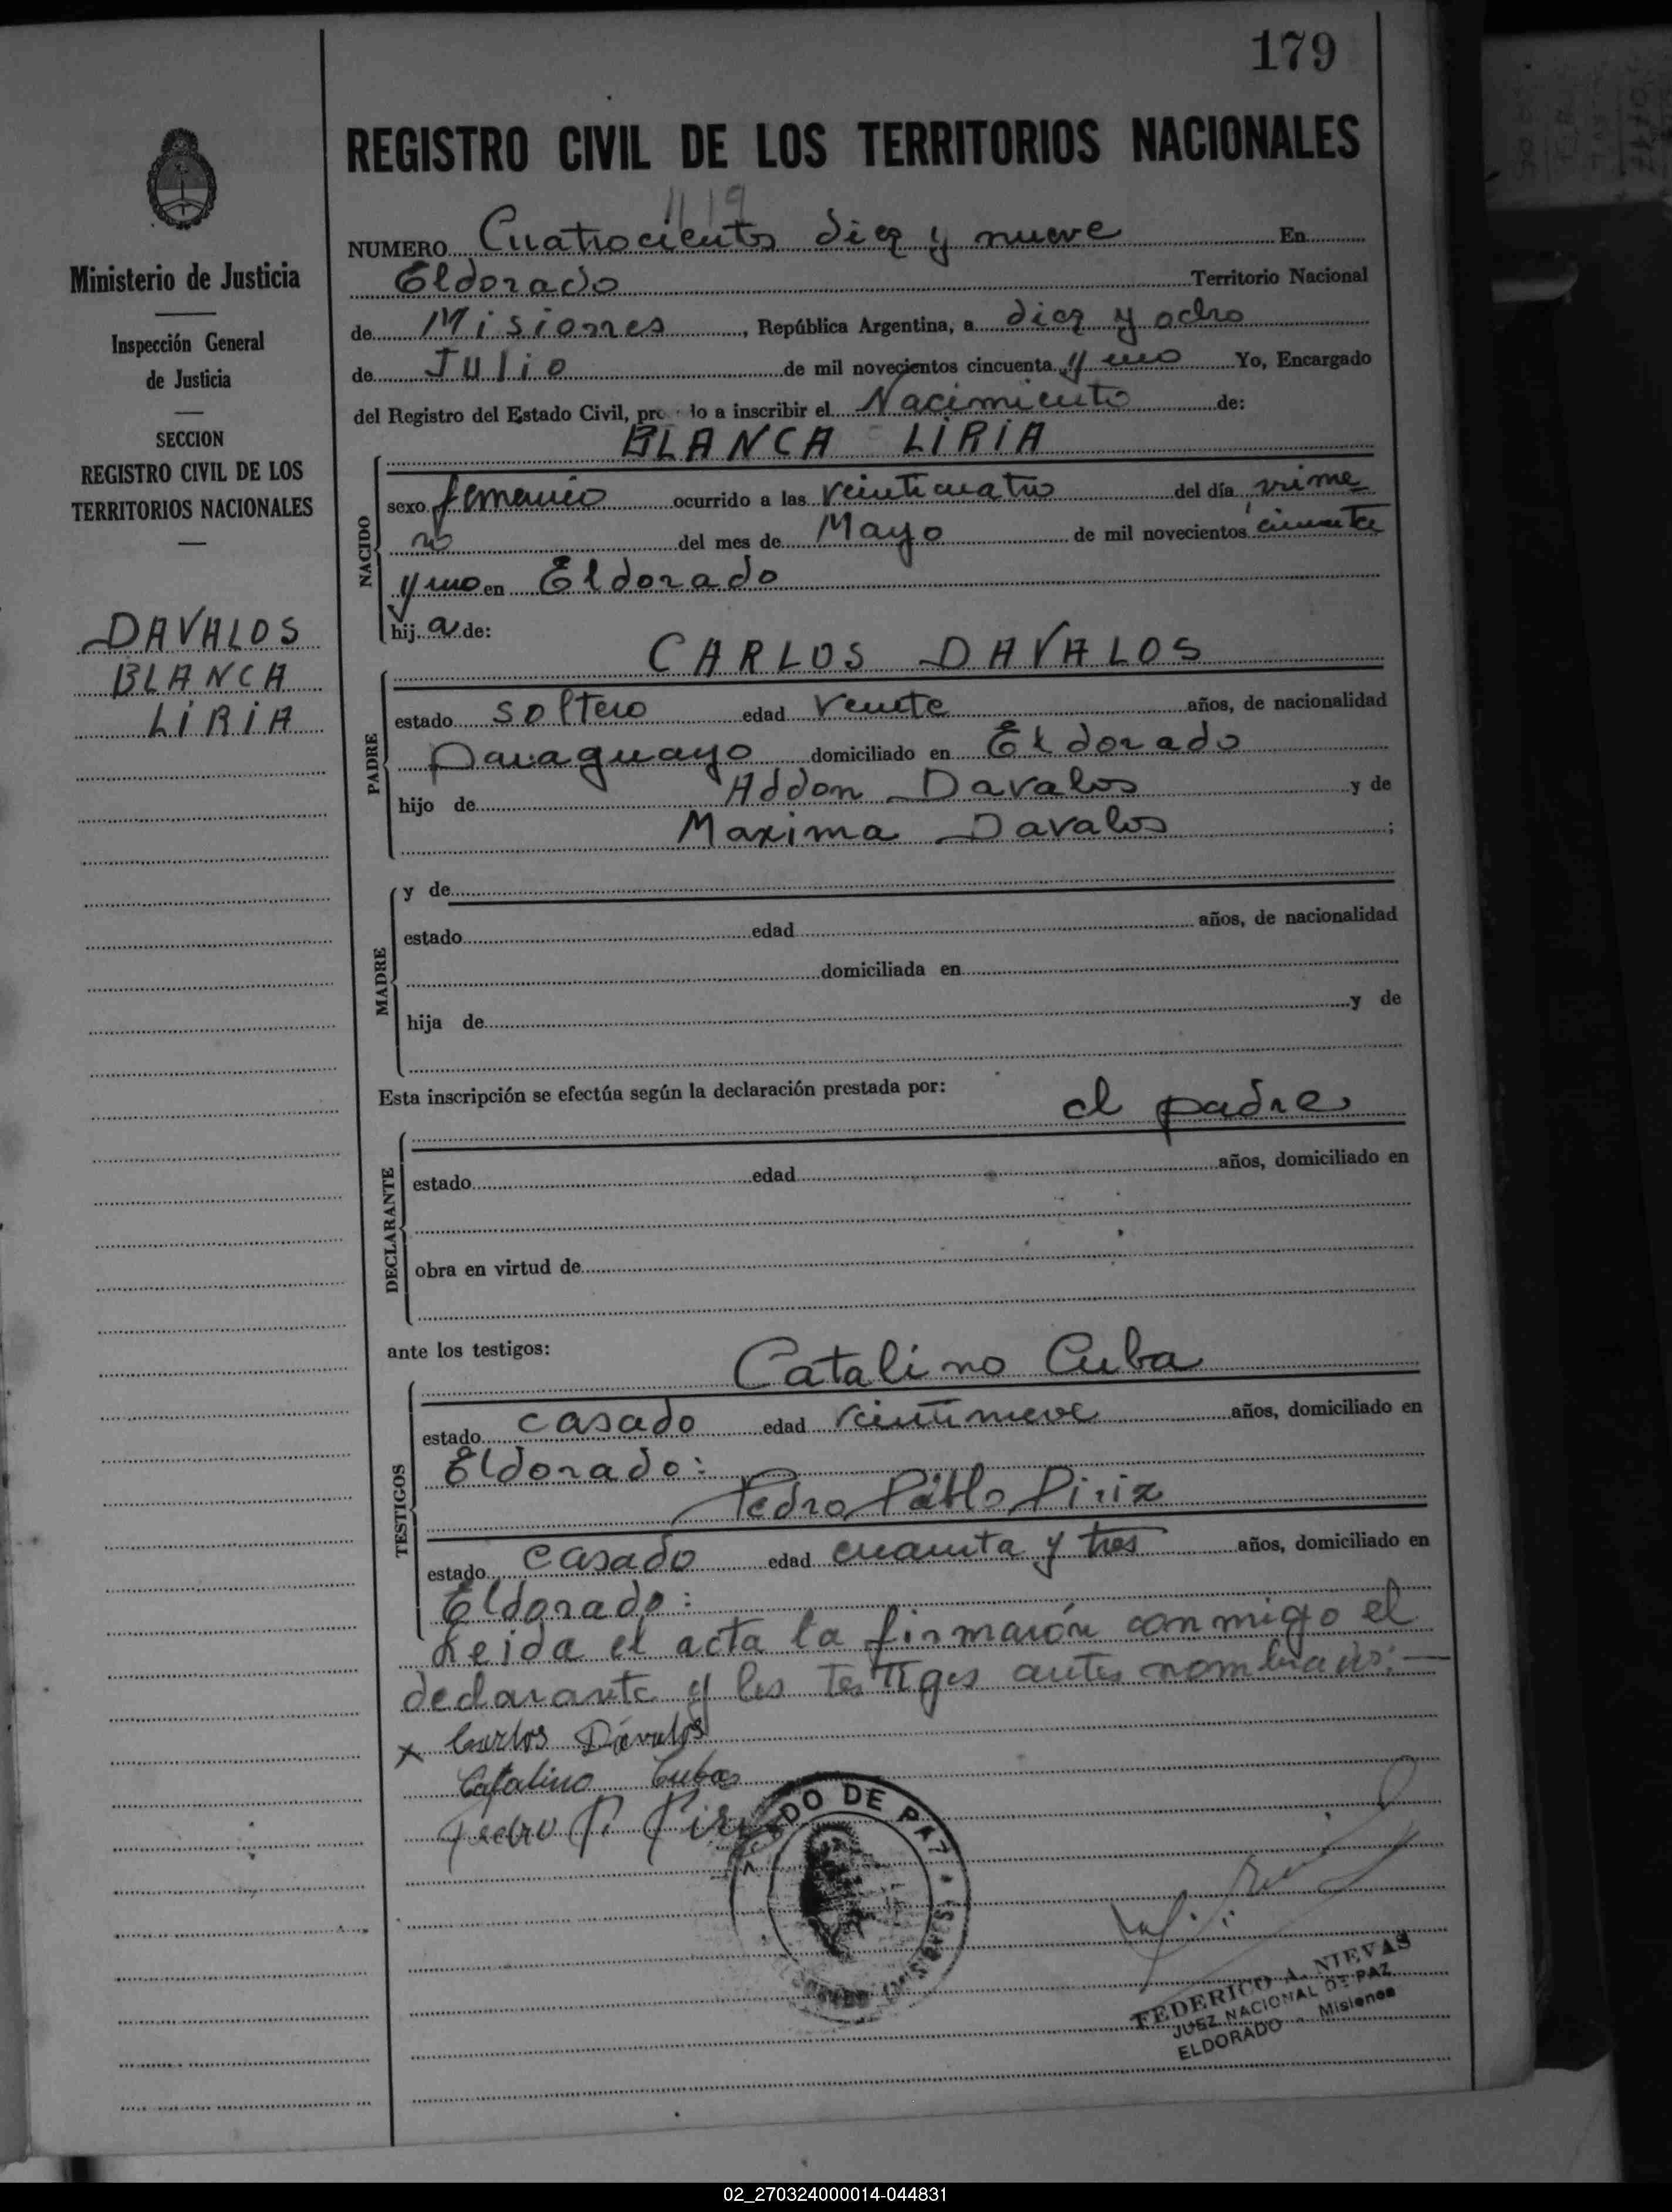 179
REGISTRO CIVIL DE LOS TERRITORIOS NACIONALES
Ministerio de Justicia
Inspección General
de Justicia
SECCION
REGISTRO CIVIL DE LOS
TERRITORIOS NACIONALES
DAVALOS
BLANCA
LIRIA
NUMERO Cuatrocientos diez y nueve En
Eldorado Territorio Nacional
de Misiones, República Argentina, a diez y ocho
de Julio de mil novecientos cincuenta y uno Yo, Encargado
del Registro del Estado Civil, pro lo a inscribir el Nacimiento de:
BLANCA LIRIA
NACIDO
sexo femenino ocurrido a las veinticuatro del día
del mes de Mayo de mil novecientos cincuenta
y uno en Eldorado
hij a de:
CARLOS DAVALOS
PADRE
estado soltero edad veinte años, de nacionalidad
Paraguayo domiciliado en Eldorado
hijo de Addon Davalos y de
Maxima Davalos ;
MADRE
y de
estado edad años, de nacionalidad
domiciliada en
hija de y de
Esta inscripción se efectúa según la declaración prestada por:
el padre
DECLARANTE
estado edad años, domiciliado en
obra en virtud de
ante los testigos:
Catalino Cuba
TESTIGOS
estado casado edad veintinueve años, domiciliado en
Eldorado:
Pedro Pablo Piriz
estado casado edad cuarenta y tres años, domiciliado en
Eldorado:
Leida el acta la firmarón conmigo el
declarante y los testigos antes nombrados:—
x Carlos Dávalos
Catalino Cubas
Pedro P. Piriz
DO DE PAZ
FEDERICO A. NIEVAS
JUEZ NACIONAL DE PAZ
ELDORADO - Misiones
02_270324000014-044831